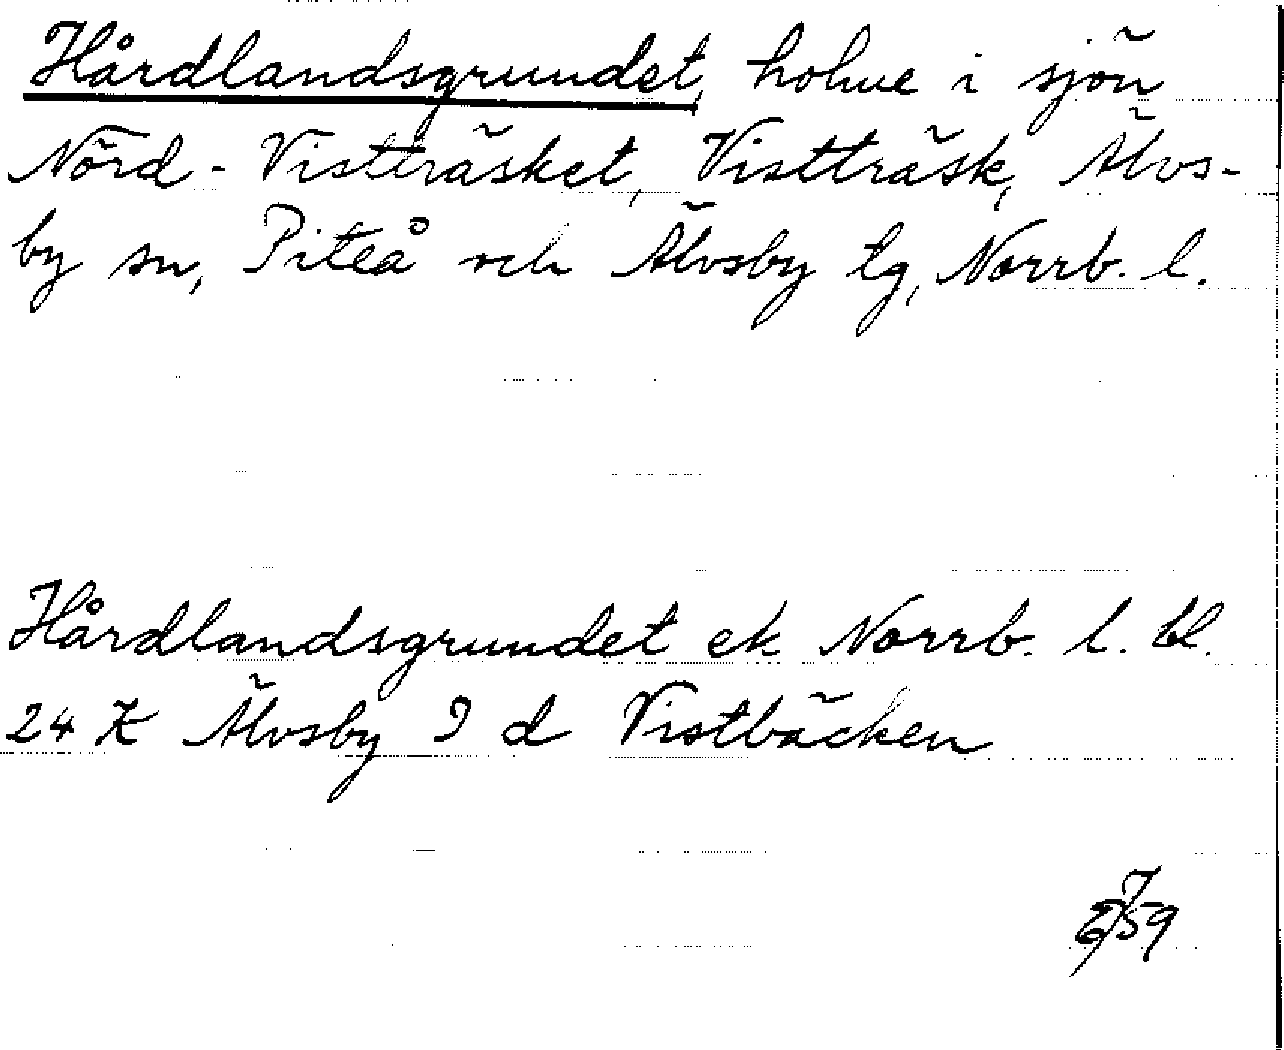 Hårdlandsgrundet, holme i sjön
Nörd-Vistträsket, Vistträsk, Älvs-
by sn, Piteå och Älvsby tg, Norrb. l.
Hårdlandsgrundet ek Norrb. l. bl.
24 K Älvsby 9 d Vistbäcken